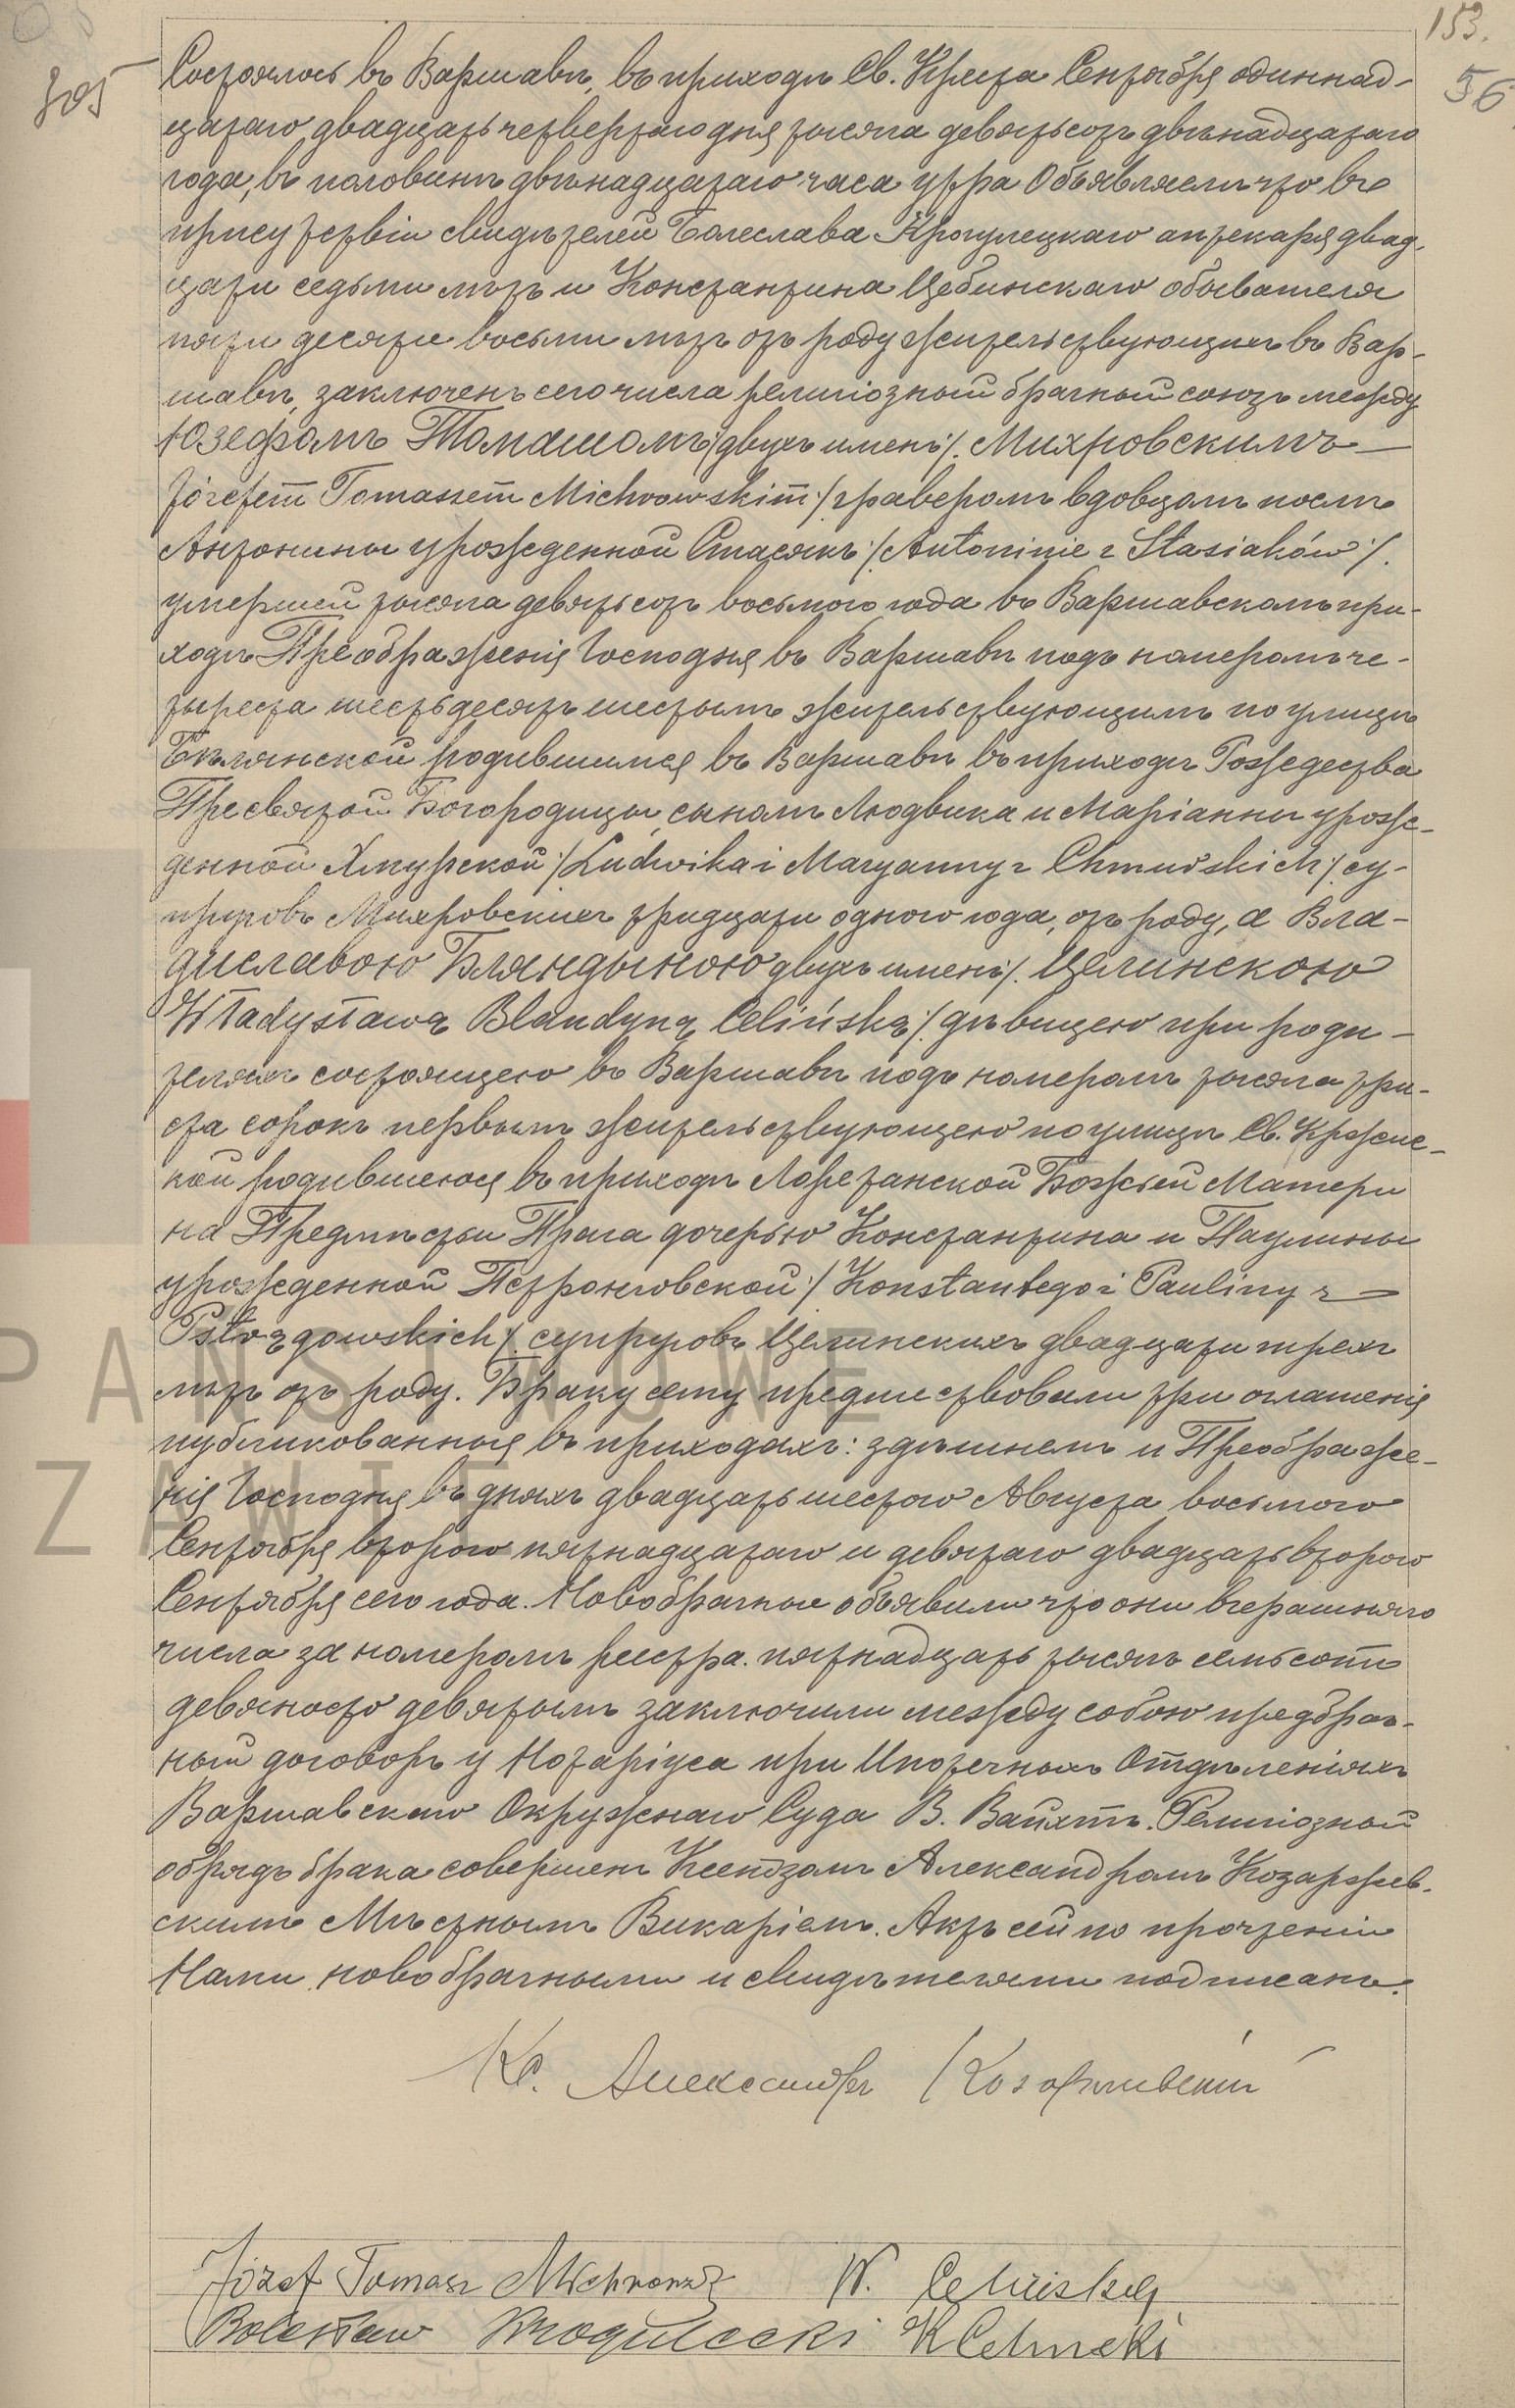 153.
56
305
Состоялось въ Варшавѣ, въ приходѣ Св. Креста Сентября одиннад-
цатаго двадцать четвертаго дня тысяча девятьсотъ двѣнадцатаго
года, въ половинѣ двѣнадцатаго часа утра Объявляемъ что въ
присутствіи свидѣтелей Болеслава Крогулецкаго аптекаря двад-
цати седьми лѣтъ и Константина Цебинскаго обывателя
пяти десяти восьми лѣтъ отъ роду жительствующихъ въ Вар-
шавѣ, заключенъ сего числа религіозный брачный союзъ между
Юзефомъ Томашомъ /двухъ именъ/. Михровскимъ —
Józefem Tomaszem Michrowskim:/ граверомъ вдовцомъ послѣ
Антонины урожденной Стасякъ /:Antoninie z Stasiaków:/.
умершей тысяча девятьсотъ восьмого года въ Варшавскомъ при-
ходѣ Преображенія Господня въ Варшавѣ подъ номеромъ че-
тыреста шестьдесятъ шестымъ жительствующимъ по улицѣ
Белянской родившимся въ Варшавѣ въ приходѣ Рождества
Пресвятой Богородицы, сыномъ Людвика и Маріанны урож-
денной Хмурской /:Ludwika i Maryanny z Chmurskich:/ су-
пруговъ Михровскихъ тридцати одного года, отъ роду, а Вла-
диславою Бляндыною двухъ именъ/. Целинскою
Władysławą Blandyną Celińską:/ дѣвицею при роди-
теляхъ состоящею въ Варшавѣ подъ номеромъ тысяча три-
ста сорокъ первымъ жительствующею по улицѣ Св. Кржис-
кой родившеюся въ приходѣ Лоретанской Божьей Матери
на Предмѣстьи Прага дочерью Константина и Паулины
урожденной Пстронговской:/ Konstantego i Pauliny z —
Pstrągowskich:/. супруговъ Целинскихъ двадцати трехъ
лѣтъ отъ роду. Браку сему предшествовали три оглашенія
публикованныя въ приходахъ: здѣшнемъ и Преображе-
нія Господня въ дняхъ двадцать шестого Августа восьмого
Сентября второго пятнадцатаго и девятаго двадцать второго
Сентября сего года. Новобрачные объявили что они вчерашняго
числа за номеромъ реестра. пятнадцать тысячъ семьсотъ
девяносто девятымъ заключили между собою предбрач-
ный договоръ у Нотаріуса при Ипотечныхъ Отдѣленіяхъ
Варшавскаго Окружнаго Суда В. Вайхтъ. Религіозный
обрядъ брака совершенъ Ксендзомъ Александромъ Козаржев-
скимъ Мѣстнымъ Викаріемъ. Актъ сей по прочтеніи
Нами новобрачными и свидѣтелями подписанъ.
Кс. Александръ Козаржевскій
Józef Tomasz Michrowski W. Celińską
Bolesław Krogulecki K Celinski
PAŃSTWOWE
ZAWIE